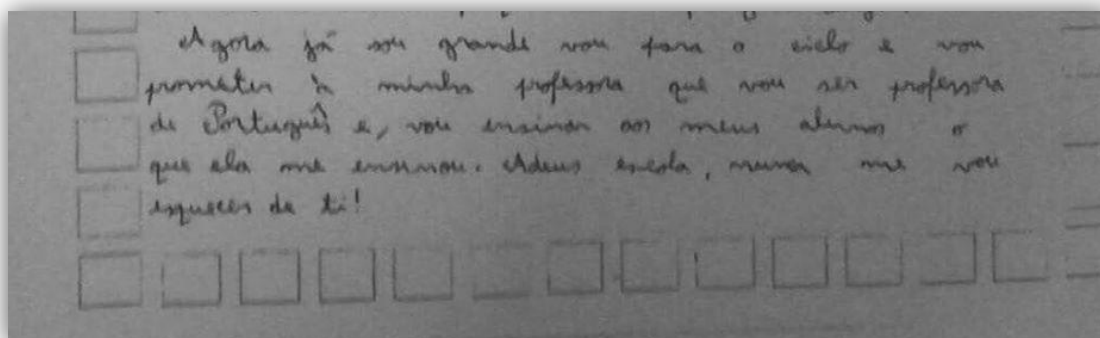 Agora já sou grande vou para o ciclo e vou
prometer à minha professora que vou ser professora
de Português e, vou ensinar aos meus alunos o
que ela me ensinou. Adeus escola, nunca me vou
esquecer de ti!